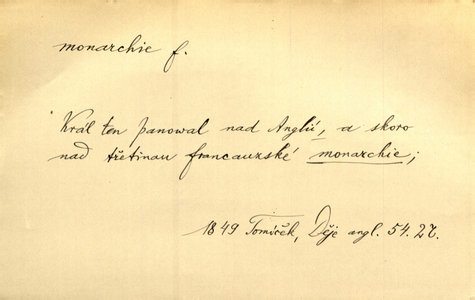 monarchie f.
Král ten panowal nad Anglií, a skoro
nad třetinau francauzské monarchie;
1849 Tomíček, Děje angl. 54.27.